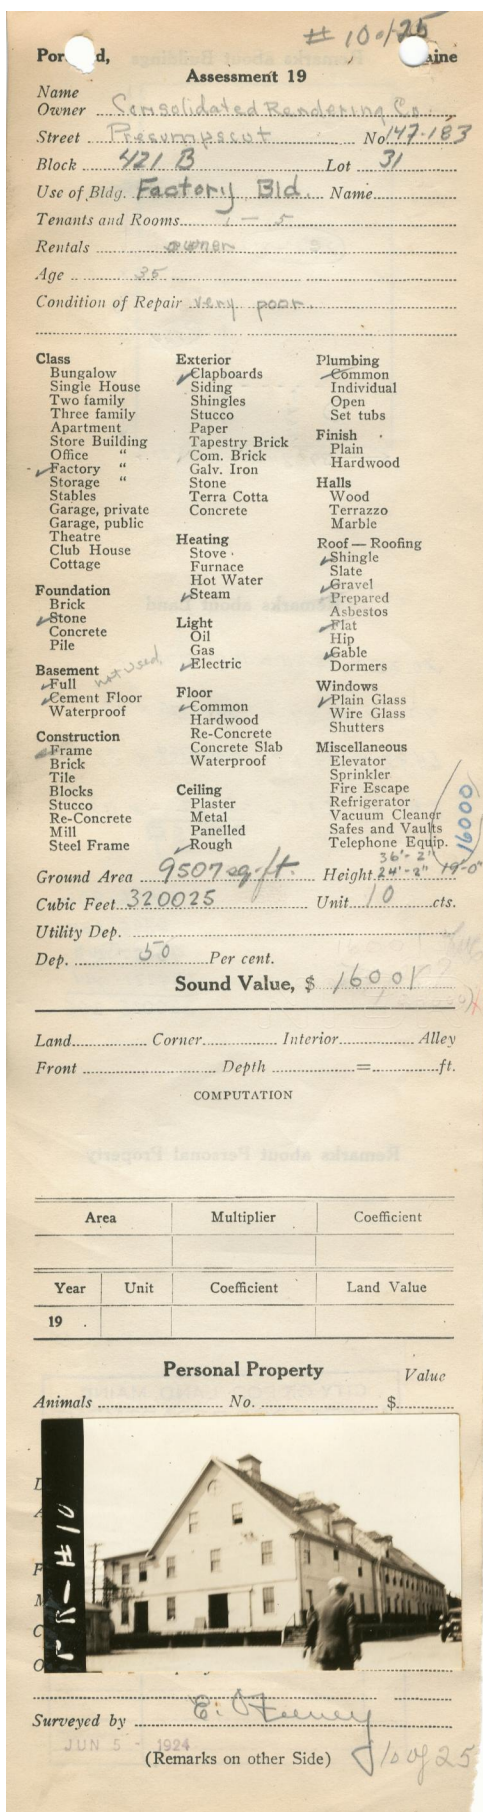 # 10 of 25
Portland, Maine
Assessment 19
Name
Owner Consolidated Rendering Co.
Street Presumpscot No 147-183
Block 421 B Lot 31
Use of Bldg. Factory Bld. Name
Tenants and Rooms 1 - 5
Rentals owner
Age 35
Condition of Repair very poor.
Class
Bungalow
Single House
Two family
Three family
Apartment
Store Building
Office "
✓Factory "
Storage "
Stables
Garage, private
Garage, public
Theatre
Club House
Cottage
Foundation
Brick
✓Stone
Concrete
Pile
Basement not used
✓Full
✓Cement Floor
Waterproof
Construction
✓Frame
Brick
Tile
Blocks
Stucco
Re-Concrete
Mill
Steel Frame
Exterior
✓Clapboards
Siding
Shingles
Stucco
Paper
Tapestry Brick
✓Com. Brick
Galv. Iron
Stone
Terra Cotta
Concrete
Heating
Stove
Furnace
Hot Water
✓Steam
Light
Oil
Gas
✓Electric
Floor
✓Common
Hardwood
Re-Concrete
Concrete Slab
Waterproof
Ceiling
Plaster
Metal
Panelled
✓Rough
Plumbing
✓Common
Individual
Open
Set tubs
Finish
Plain
Hardwood
Halls
Wood
Terrazzo
Marble
Roof — Roofing
✓Shingle
Slate
✓Gravel
✓Prepared
Asbestos
✓Flat
Hip
✓Gable
Dormers
Windows
✓Plain Glass
Wire Glass
Shutters
Miscellaneous
Elevator
Sprinkler
Fire Escape
Refrigerator
Vacuum Cleaner
Safes and Vaults
Telephone Equip.
16000
36'-2"
Ground Area 9507 sq. ft. Height 24'-2" 19'-0"
Cubic Feet 320025 Unit 10 cts.
Utility Dep.
Dep. 50 Per cent.
Sound Value, $ 16001
Land Corner Interior Alley
Front Depth = ft.
COMPUTATION
Area Multiplier Coefficient
Year Unit Coefficient Land Value
19
Personal Property Value
Animals No. $
Surveyed by E. Feeney
JUN 5 - 1924
(Remarks on other Side) 10 of 25